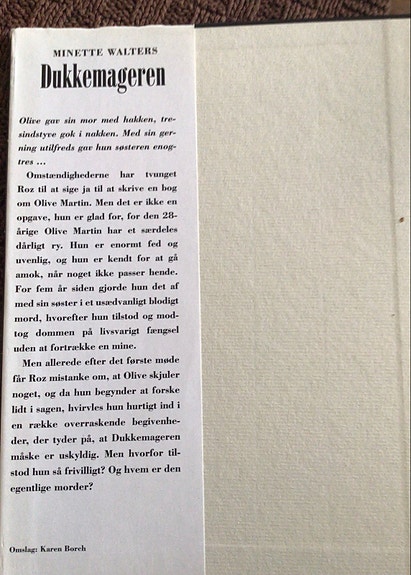 MINETTE WALTERS
Dukkemageren
Olive gav sin mor med hakken, tre-
sindstyve gok i nakken. Med sin ger-
ning utilfreds gav hun søsteren enog-
tres ...
Omstændighederne har tvunget
Roz til at sige ja til at skrive en bog
om Olive Martin. Men det er ikke en
opgave, hun er glad for, for den 28-
årige Olive Martin har et særdeles
dårligt ry. Hun er enormt fed og
uvenlig, og hun er kendt for at gå
amok, når noget ikke passer hende.
For fem år siden gjorde hun det af
med sin søster i et usædvanligt blodigt
mord, hvorefter hun tilstod og mod-
tog dommen på livsvarigt fængsel
uden at fortrække en mine.
Men allerede efter det første møde
får Roz mistanke om, at Olive skjuler
noget, og da hun begynder at forske
lidt i sagen, hvirvles hun hurtigt ind i
en række overraskende begivenhe-
der, der tyder på, at Dukkemageren
måske er uskyldig. Men hvorfor til-
stod hun så frivilligt? Og hvem er den
egentlige morder?
Omslag: Karen Borch